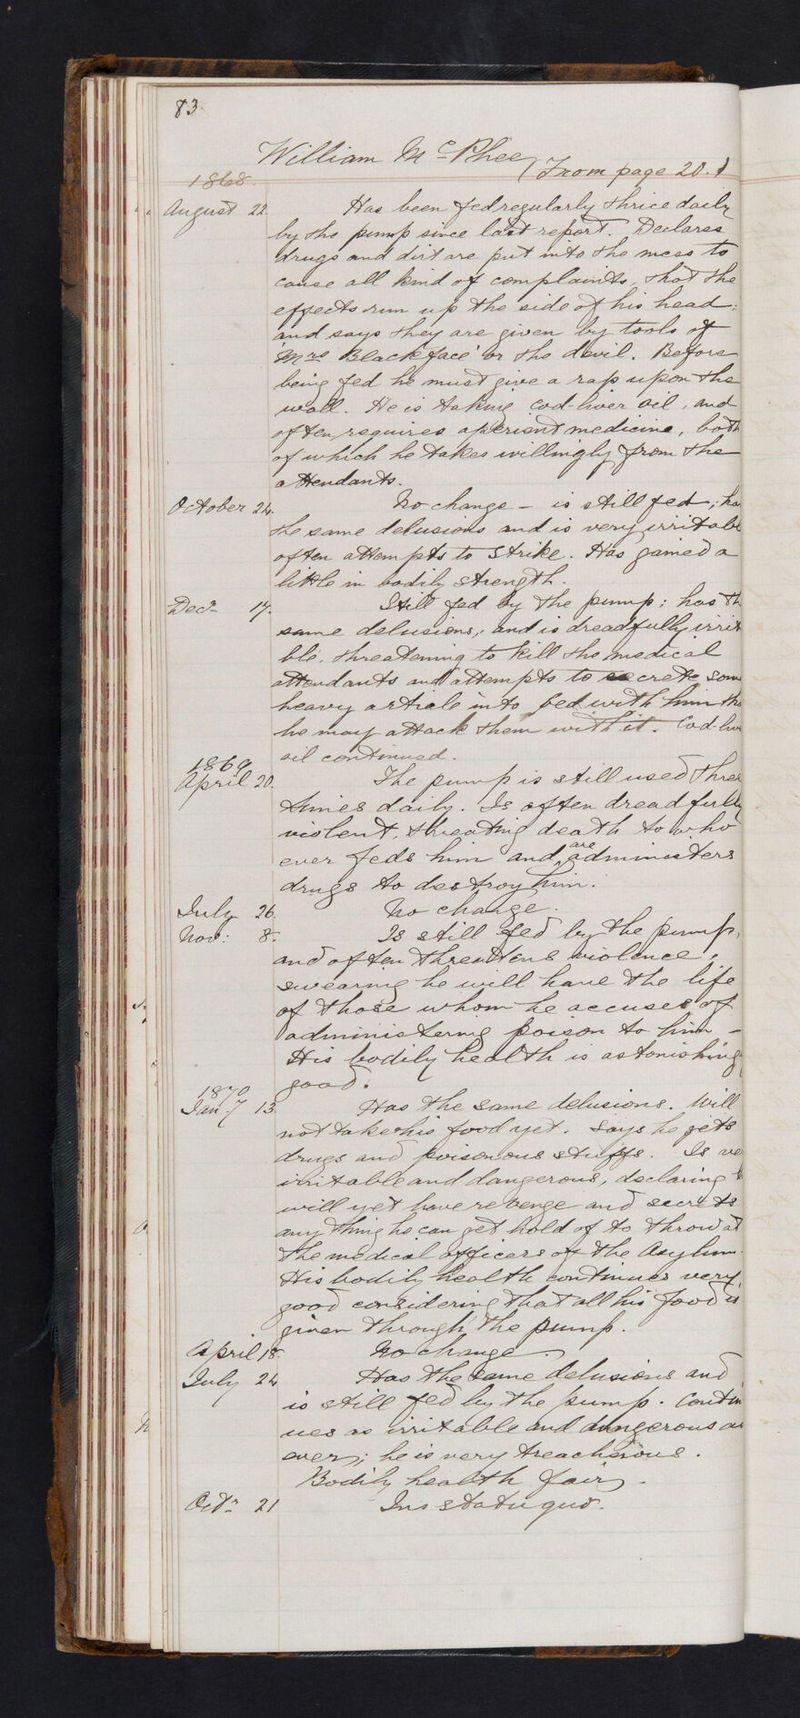 83.
William McPhee, From page 20.
1868.
August 22. Has been fed regularly thrice daily
by the pump since last report. Declares
drugs and dirt are put into the mess to
cause all kind of complaints, that the
effects run up the side of his head;
and says they are given by tools of
'Mrs Blackface' or the devil. Before
being fed he must give a rap upon the
wall. He is taking cod-liver oil, and
often requires aperient medicine, both
of which he takes willingly from the
attendants.
October 24. No change – is still fed; ha
the same delusions and is very irritabl
often attempts to strike. Has gained a
little in bodily strength.
Decr 17. Still fed by the pump; has th
same delusions, and is dreadfully irrit
ble, threatening to kill the medical
attendants and attempts to secrete som
heavy article into bed with him tha
he may attack them with it. Cod-liv
oil continued.
1869
April 20. The pump is still used three
times daily. Is often dreadfully
violent, threating death to who
ever feds him and are administers
drugs to destroy him.
July 26. No change.
Nov: 8. Is still fed by the pump,
and often threattens violence,
swearing he will have the life
of those whom he accuses of
administering poison to him –
His bodily health is astonishing
good.
1870
Jany 13. Has the same delusions. Will
not take his food yet. Says he gets
drugs and poisonous stuffs. Is ve
irritable and dangerous, declaring h
will yet have revenge and secrets
any thing he can get hold of to throw at
the medical officers of the Asylum
His bodily health continues very
good considering that all his food is
given through the pump.
April 18. No change.
July 24 Has the same delusions and
is still fed by the pump. Contin
ues as irritable and dangerous as
ever; he is very treacherous.
Bodily health fair.
Octr 21 Ins statu quo.